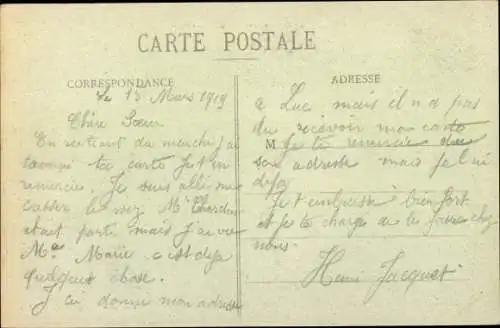 CARTE POSTALE
CORRESPONDANCE
Le 13 Mars 1919
Chère Sœur
En rentrant du marché j'ai
trouvé ta carte je t'en
remercie. Je suis allé me
casser le nez Mr
était parti mais j'ai vu
Me Marie c'est déjà
quelques chose.
J'ai donné mon adresse
ADRESSE
a Luc mais il n'a pas
du recevoir ma carte
M
Je te remercie de
son adresse mais je l'ai
deja
Je t'embrasse bien fort
et je te charge de le faire chez
vous.
Henri Jacquet